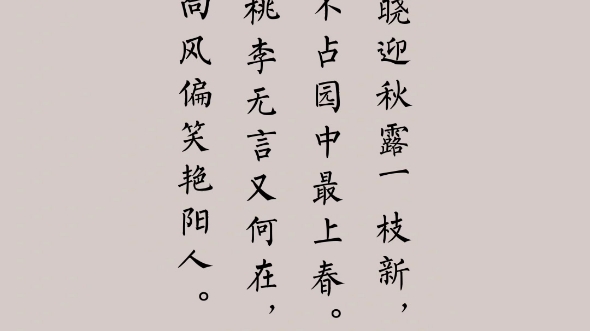 晓迎秋露一枝新，
不占园中最上春。
桃李无言又何在，
向风偏笑艳阳人。